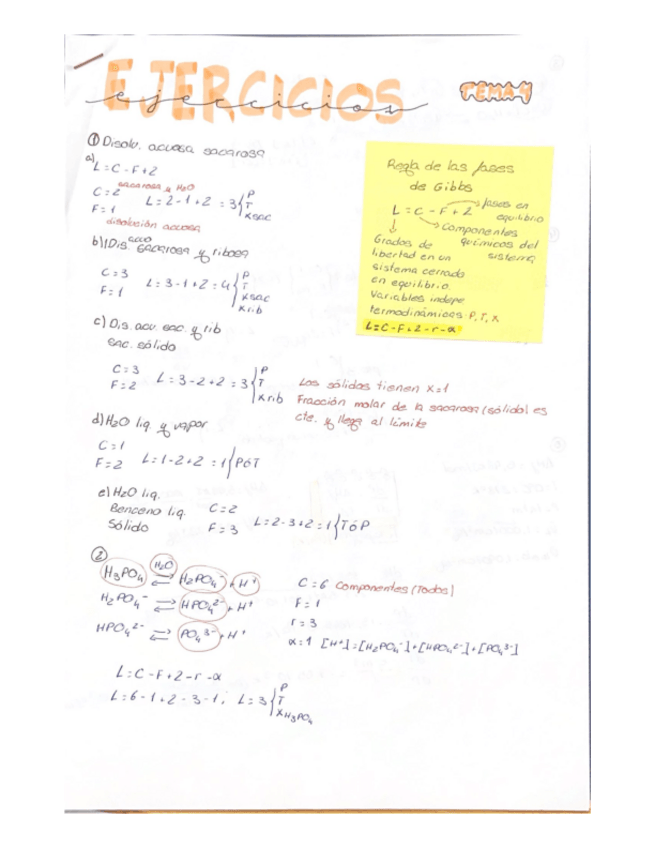 EJERCICIOS
ejercicios
TEMA 4
① Disolu. acuosa sacarosa
a) L = C - F + 2
C = 2 sacarosa y H2O
F = 1
disolución acuosa
L = 2 - 1 + 2 = 3 { P
T
xsac
b) Dis. acuo sacarosa y ribosa
C = 3
F = 1
L = 3 - 1 + 2 = 4 { P
T
xsac
xrib
c) Dis. acu. sac. y rib
sac. sólido
C = 3
F = 2
L = 3 - 2 + 2 = 3 { P
T
xrib
Los sólidos tienen x=1
Fracción molar de la sacarosa (sólido) es
cte. y llega al límite
d) H2O liq. y vapor
C = 1
F = 2
L = 1 - 2 + 2 = 1 { P ó T
e) H2O liq.
Benceno liq.
Sólido
C = 2
F = 3
L = 2 - 3 + 2 = 1 { T ó P
Regla de las fases
de Gibbs
L = C - F + 2
fases en
equilibrio
Componentes
químicos del
sistema
Grados de
libertad en un
sistema cerrado
en equilibrio.
Variables indepe
termodinámicas P, T, X
L = C - F + 2 - r - α
②
H3PO4 ⇌ H2PO4⁻ + H⁺
H2O
H2PO4⁻ ⇌ HPO4²⁻ + H⁺
HPO4²⁻ ⇌ PO4³⁻ + H⁺
C = 6 Componentes (Todos)
F = 1
r = 3
α = 1 [H⁺] = [H2PO4⁻] + [HPO4²⁻] + [PO4³⁻]
L = C - F + 2 - r - α
L = 6 - 1 + 2 - 3 - 1; L = 3 { P
T
xH3PO4